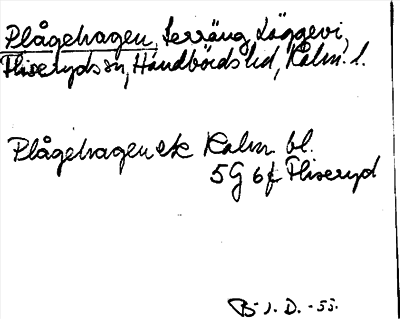 Plågehagen, terräng Läggevi,
Fliseryds sn, Handbörds hd, Kalm. l.
Plågehagen ek Kalm. bl.
5G 6f Fliseryd
B. J. D. -55.